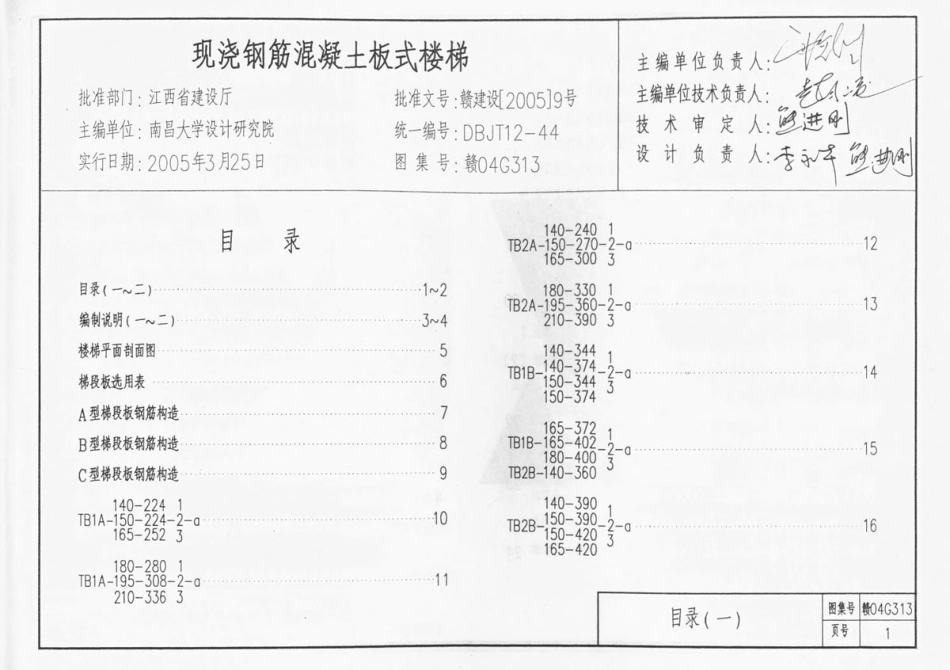 现浇钢筋混凝土板式楼梯
批准部门: 江西省建设厅
批准文号: 赣建设[2005]9号
主编单位: 南昌大学设计研究院
统一编号: DBJT12-44
实行日期: 2005年3月25日
图集号: 赣04G313
主编单位负责人:
主编单位技术负责人:
技术审定人: 熊进刚
设计负责人: 李永华 熊进刚
目 录
目录(一~二) 1~2
编制说明(一~二) 3~4
楼梯平面剖面图 5
梯段板选用表 6
A型梯段板钢筋构造 7
B型梯段板钢筋构造 8
C型梯段板钢筋构造 9
140-224 1
TB1A-150-224-2-a 10
165-252 3
180-280 1
TB1A-195-308-2-a 11
210-336 3
140-240 1
TB2A-150-270-2-a 12
165-300 3
180-330 1
TB2A-195-360-2-a 13
210-390 3
140-344
140-374 1
TB1B- -2-a 14
150-344 3
150-374
165-372 1
TB1B-165-402
-2-a 15
180-400 3
TB2B-140-360
140-390
150-390 1
TB2B- -2-a 16
150-420 3
165-420
目录(一)
图集号 赣04G313
页号 1